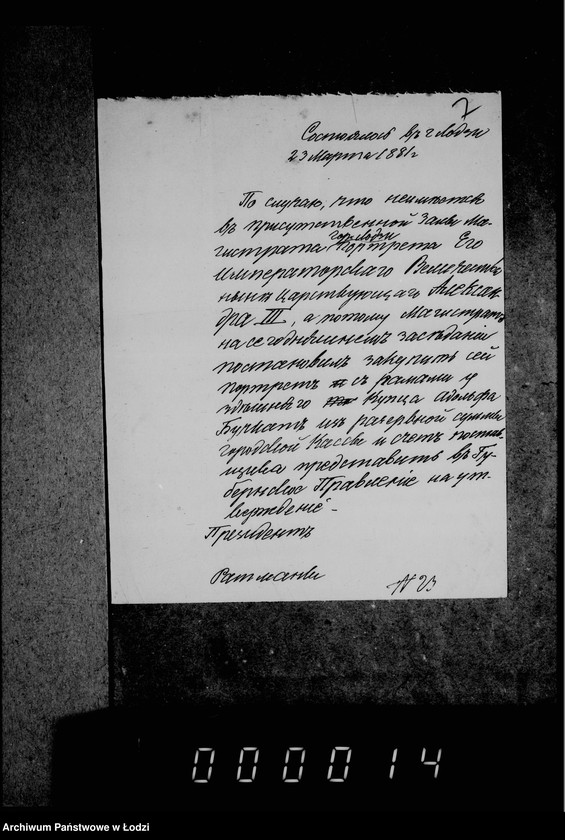 7
Состоялось въ г. Лодзи
23 Марта 1881 г
По случаю, что неимѣется
въ присутственной Залѣ Ма-
гистрата гор. Лодзи Портрета Его
Императорскаго Величества
нынѣ царствующаго Алексан-
дра III, а потому Магистратъ
на сегодняшнемъ засѣданіи
постановилъ закупить сей
портретъ съ рамами у
здѣшняго Купца Адольфа
из резервной суммы
городской Кассы и счетъ постав-
щика представить въ Гу-
бернское Правленіе на ут-
вержденіе -
Президентъ
Ратманы
000014
Archiwum Państwowe w Łodzi